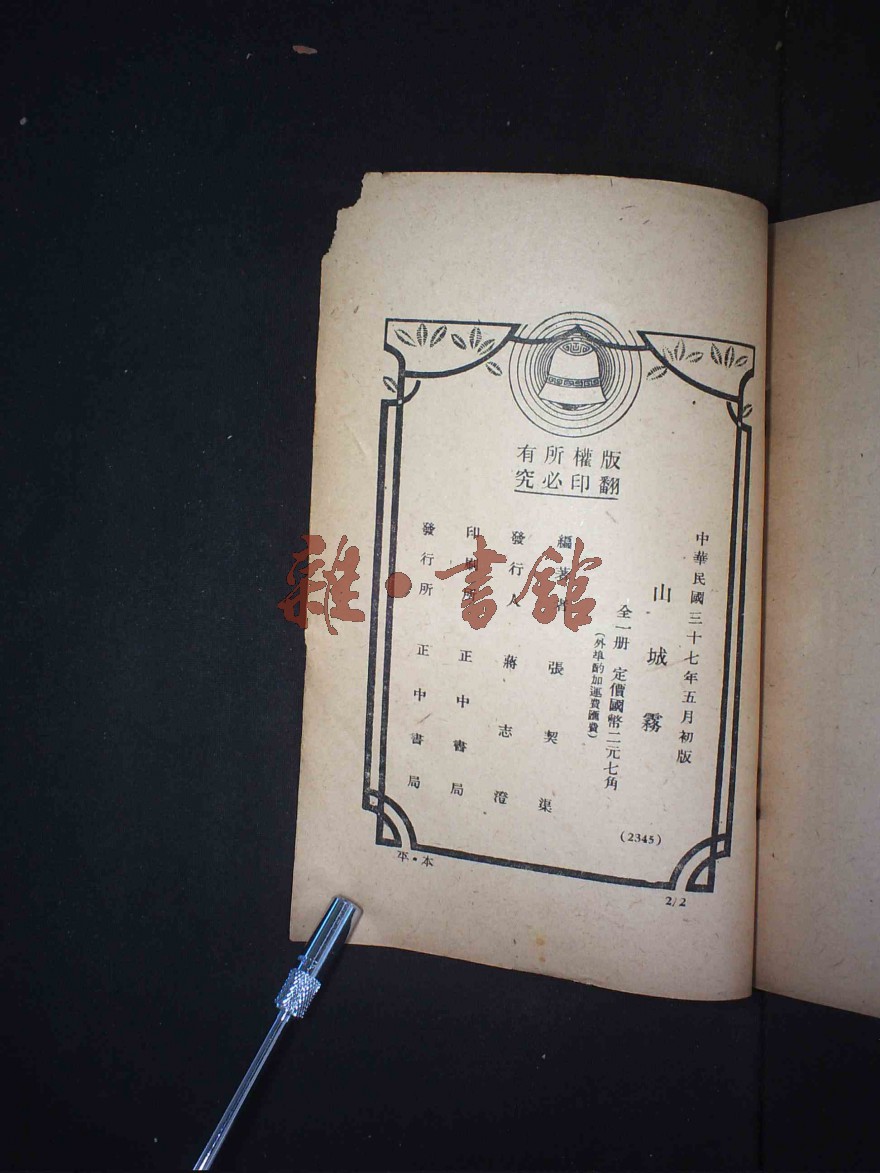 版權所有
翻印必究
中華民國三十七年五月初版
山城霧
全一册 定價國幣二元七角
(外埠酌加運費匯費)
編著者 張契渠
發行人 蔣志澄
印刷所 正中書局
發行所 正中書局
(2345)
本・平
2/2
雜・書館